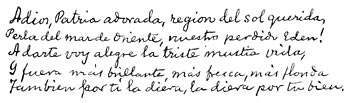 Adios, Patria adorada, region del sol querida,
Perla del mar de Oriente, nuestro perdido Eden!
A darte voy alegre la triste mustia vida,
Y fuera más brillante, más fresca, más florida
Tambien por ti la diéra, la diera por tu bien.